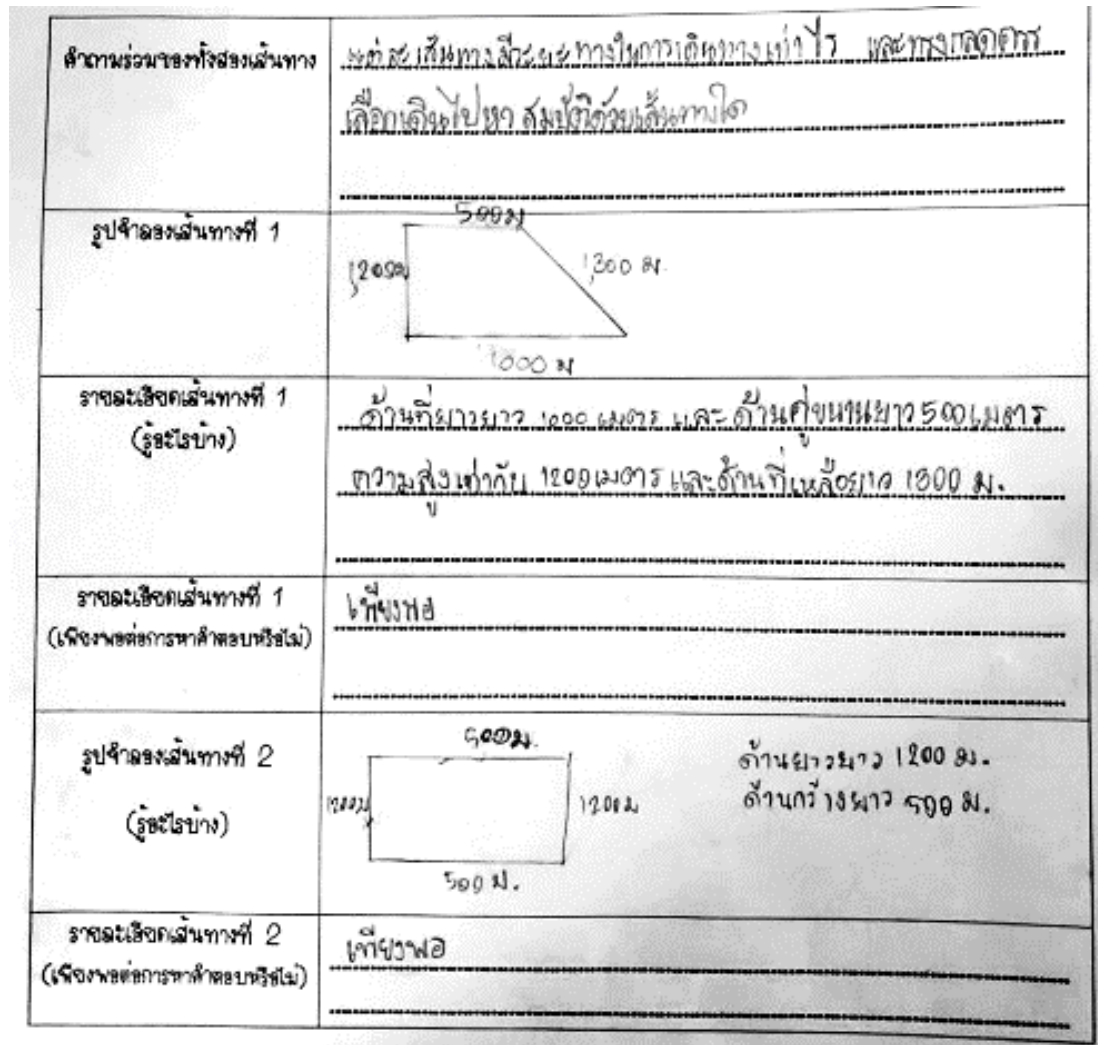 คำถามร่วมของทั้งสองเส้นทาง
แต่ละเส้นทางมีระยะทางในการเดินทางเท่าไร และทรงกลดควร
เลือกเดินไปหาสมบัติด้วยเส้นทางใด
รูปจำลองเส้นทางที่ 1
500 ม
1,200 ม
1,300 ม.
1000 ม
รายละเอียดเส้นทางที่ 1
(รู้อะไรบ้าง)
ด้านที่ยาวยาว 1000 เมตร และ ด้านคู่ขนานยาว 500 เมตร
ความสูงเท่ากับ 1200 เมตร และด้านที่เหลือยาว 1300 ม.
รายละเอียดเส้นทางที่ 1
(เพียงพอต่อการหาคำตอบหรือไม่)
เพียงพอ
รูปจำลองเส้นทางที่ 2
(รู้อะไรบ้าง)
500 ม.
1200 ม
1200 ม
500 ม.
ด้านยาวยาว 1200 ม.
ด้านกว้างยาว 500 ม.
รายละเอียดเส้นทางที่ 2
(เพียงพอต่อการหาคำตอบหรือไม่)
เพียงพอ